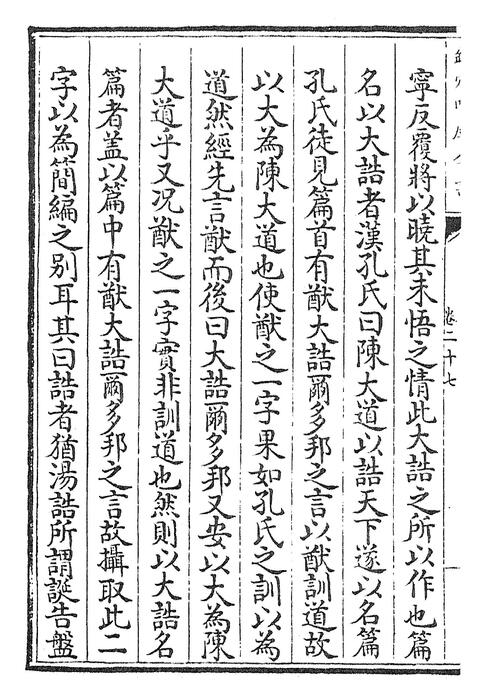 卷二十七
寧反覆將以曉其未悟之情此大誥之所以作也篇
名以大誥者漢孔氏曰陳大道以誥天下遂以名篇
孔氏徒見篇首有猷大誥爾多邦之言以猷訓道故
以大為陳大道也使猷之一字果如孔氏之訓以為
道然經先言猷而後曰大誥爾多邦又安以大為陳
大道乎又况猷之一字實非訓道也然則以大誥名
篇者盖以篇中有猷大誥爾多邦之言故攝取此二
字以為簡編之别耳其曰誥者猶湯誥所謂誕告盤